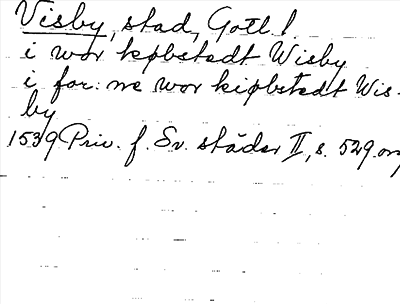 Visby, stad, Gotl.
i wor købstedt Wisby
i for: ne wor kiøbstedt Wis-
by
1539 Priv. f. Sv. städer II, s. 529 orig